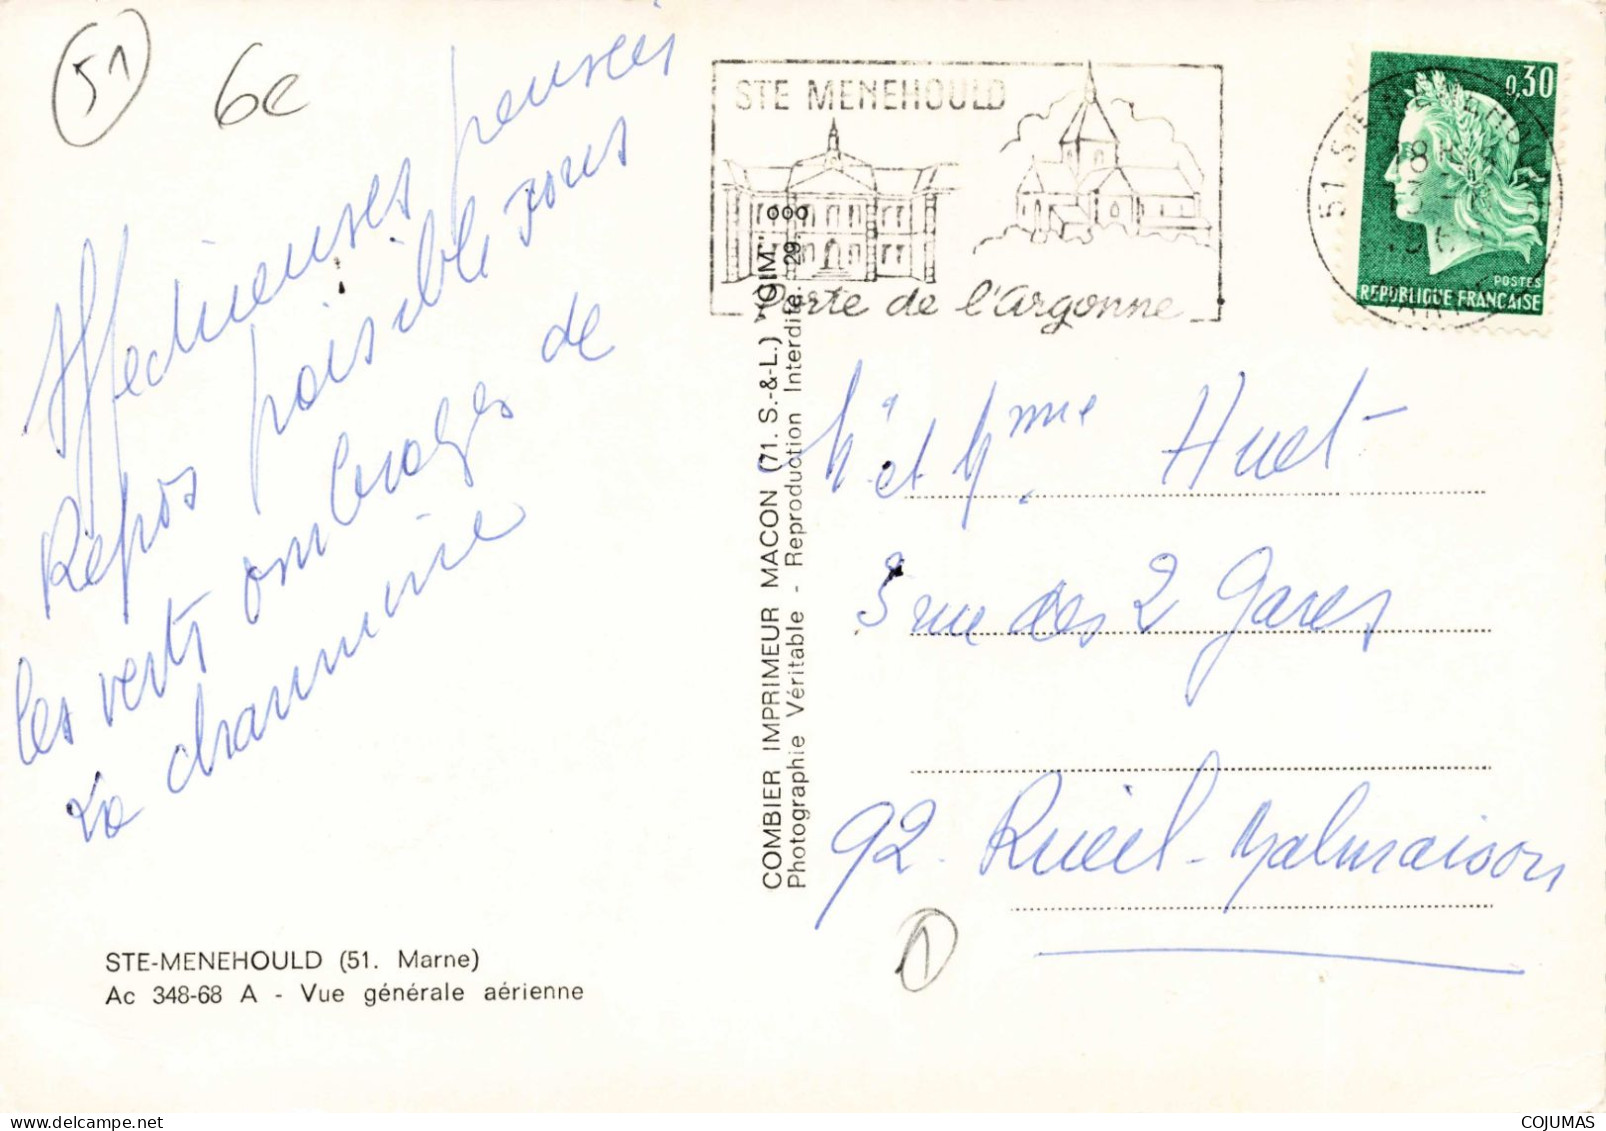 51
6e
Affectueuses pensées
Repos paisible sous
les verts ombrages de
la charmine
STE-MENEHOULD (51. Marne)
Ac 348-68 A - Vue générale aérienne
COMBIER IMPRIMEUR MACON (71. S.-&-L.) "CIM"
Photographie Véritable - Reproduction Interdite. 29.
STE MENEHOULD
Porte de l'Argonne
0,30
POSTES
REPUBLIQUE FRANÇAISE
51 STE MENEHOULD
M. et Mme Huet
3 rue des 2 Gares
92. Rueil-Malmaison
1
COJUMAS